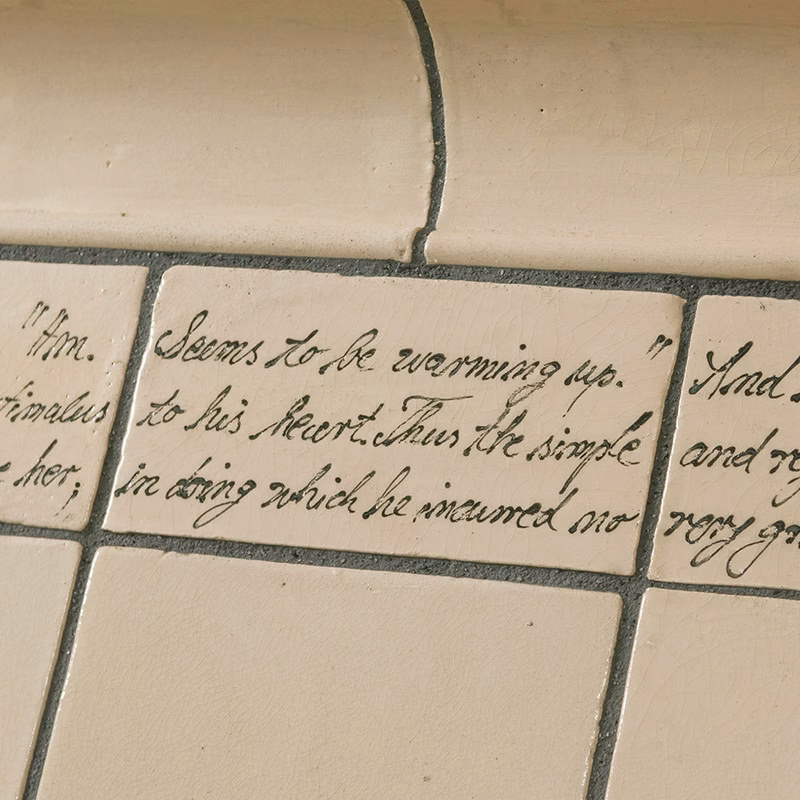 "Hm. Seems to be warming up." And
timulus to his heart. Thus the simple and
her; in doing which he incurred no very